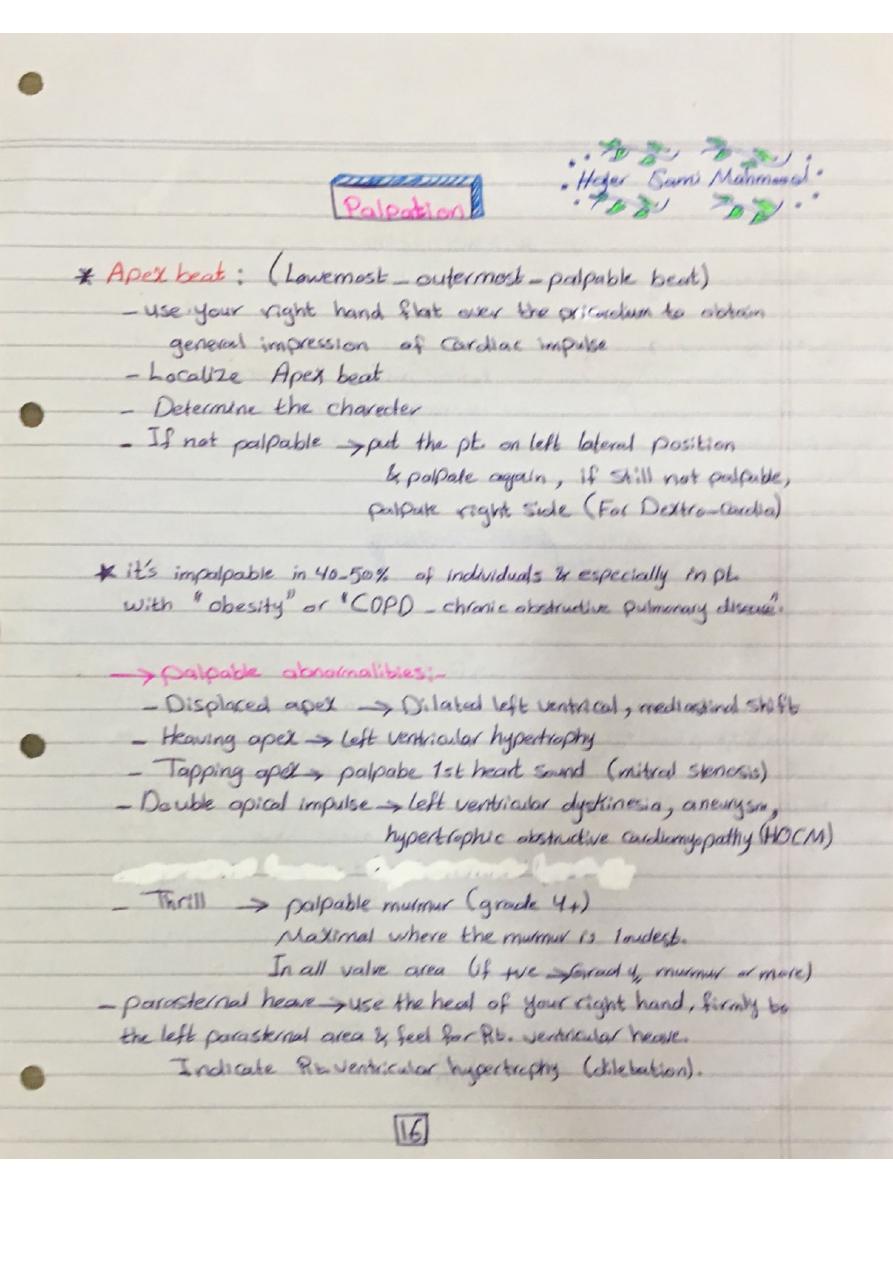 Hajer Sami Mahmood
Palpation
* Apex beat : (Lowemost - outermost - palpable beat)
- use your right hand flat over the pricordum to obtain
general impression of cardiac impulse
- Localize Apex beat
- Determine the charecter
- If not palpable → put the pt. on left lateral position
& palpate again, if still not palpable,
palpate right side (For Dextro-cardia)
* it's impalpable in 40-50% of individuals & especially in pt.
with "obesity" or "COPD - chronic obstructive pulmonary disease".
→ palpable abnormalities:-
- Displaced apex → Dilated left ventrical, mediastinal shift
- Heaving apex → left ventricular hypertrophy
- Tapping apex → palpabe 1st heart sound (mitral stenosis)
- Double apical impulse → left ventricular dyskinesia, aneurysm,
hypertrophic obstructive cardiomyopathy (HOCM)
- Thrill → palpable murmur (grade 4+)
Maximal where the murmur is loudest.
In all valve area (if +ve → Grad 4 murmur or more)
- parasternal heave → use the heal of your right hand, firmly to
the left parasternal area & feel for Rt. ventricular heave.
Indicate Rt ventricular hypertrophy (dilebation).
16